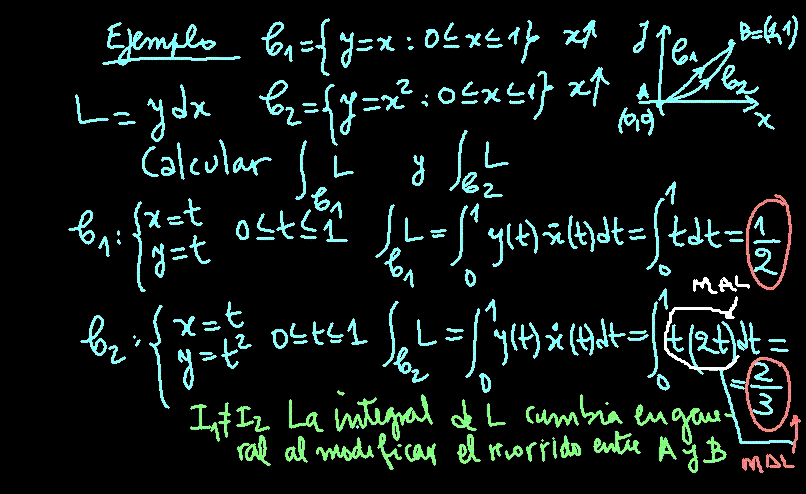 Ejemplo 𝒞₁={y=x : 0≤x≤1} x↑
L=ydx 𝒞₂={y=x² : 0≤x≤1} x↑
y B=(1,1)
𝒞₁ 𝒞₂
A
(0,0) x
Calcular ∫_𝒞₁ L y ∫_𝒞₂ L
𝒞₁: {x=t y=t 0≤t≤1 ∫_𝒞₁ L=∫₀¹ y(t)ẋ(t)dt=∫₀¹ tdt=1/2
MAL
𝒞₂: {x=t y=t² 0≤t≤1 ∫_𝒞₂ L=∫₀¹ y(t)ẋ(t)dt=∫₀¹ t(2t)dt=
=2/3
I₁≠I₂ La integral de L cambia en gene-
ral al modificar el recorrido entre A y B
MAL